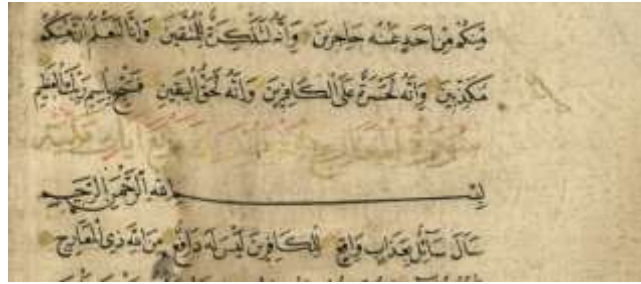 مِنْكُمْ مِنْ اَحَدٍ عَنْهُ حَاجِزِينَ وَاِنَّهُ لَتَذْكِرَةٌ لِلْمُتَّقِينَ وَاِنَّا لَنَعْلَمُ اَنَّ مِنْكُمْ
مُكَذِّبِينَ وَاِنَّهُ لَحَسْرَةٌ عَلَى الْكَافِرِينَ وَاِنَّهُ لَحَقُّ الْيَقِينِ فَسَبِّحْ بِاسْمِ رَبِّكَ الْعَظِيمِ
سورة المعارج
بِسْمِ اللهِ الرَّحْمَنِ الرَّحِيمِ
سَاَلَ سَآئِلٌ بِعَذَابٍ وَاقِعٍ لِلْكَافِرِينَ لَيْسَ لَهُ دَافِعٌ مِنَ اللهِ ذِي الْمَعَارِجِ